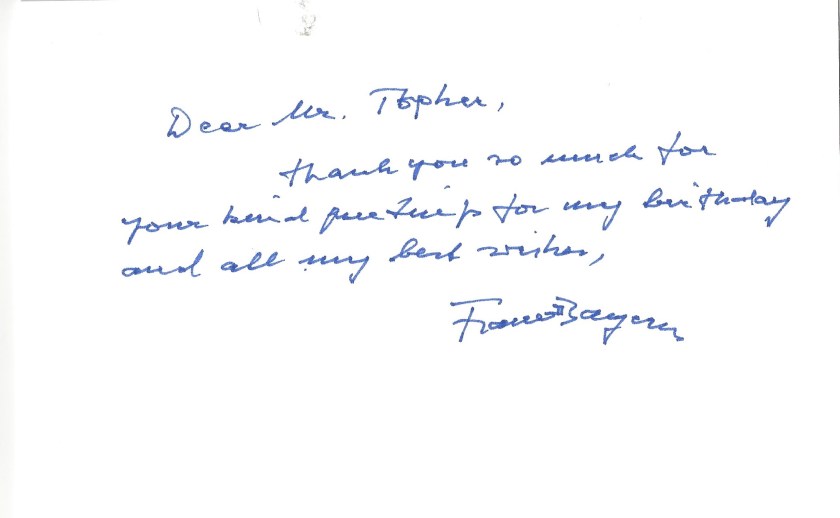 Dear Mr. Topher,
thank you so much for
your kind greetings for my birthday
and all my best wishes,
Franz Bayern